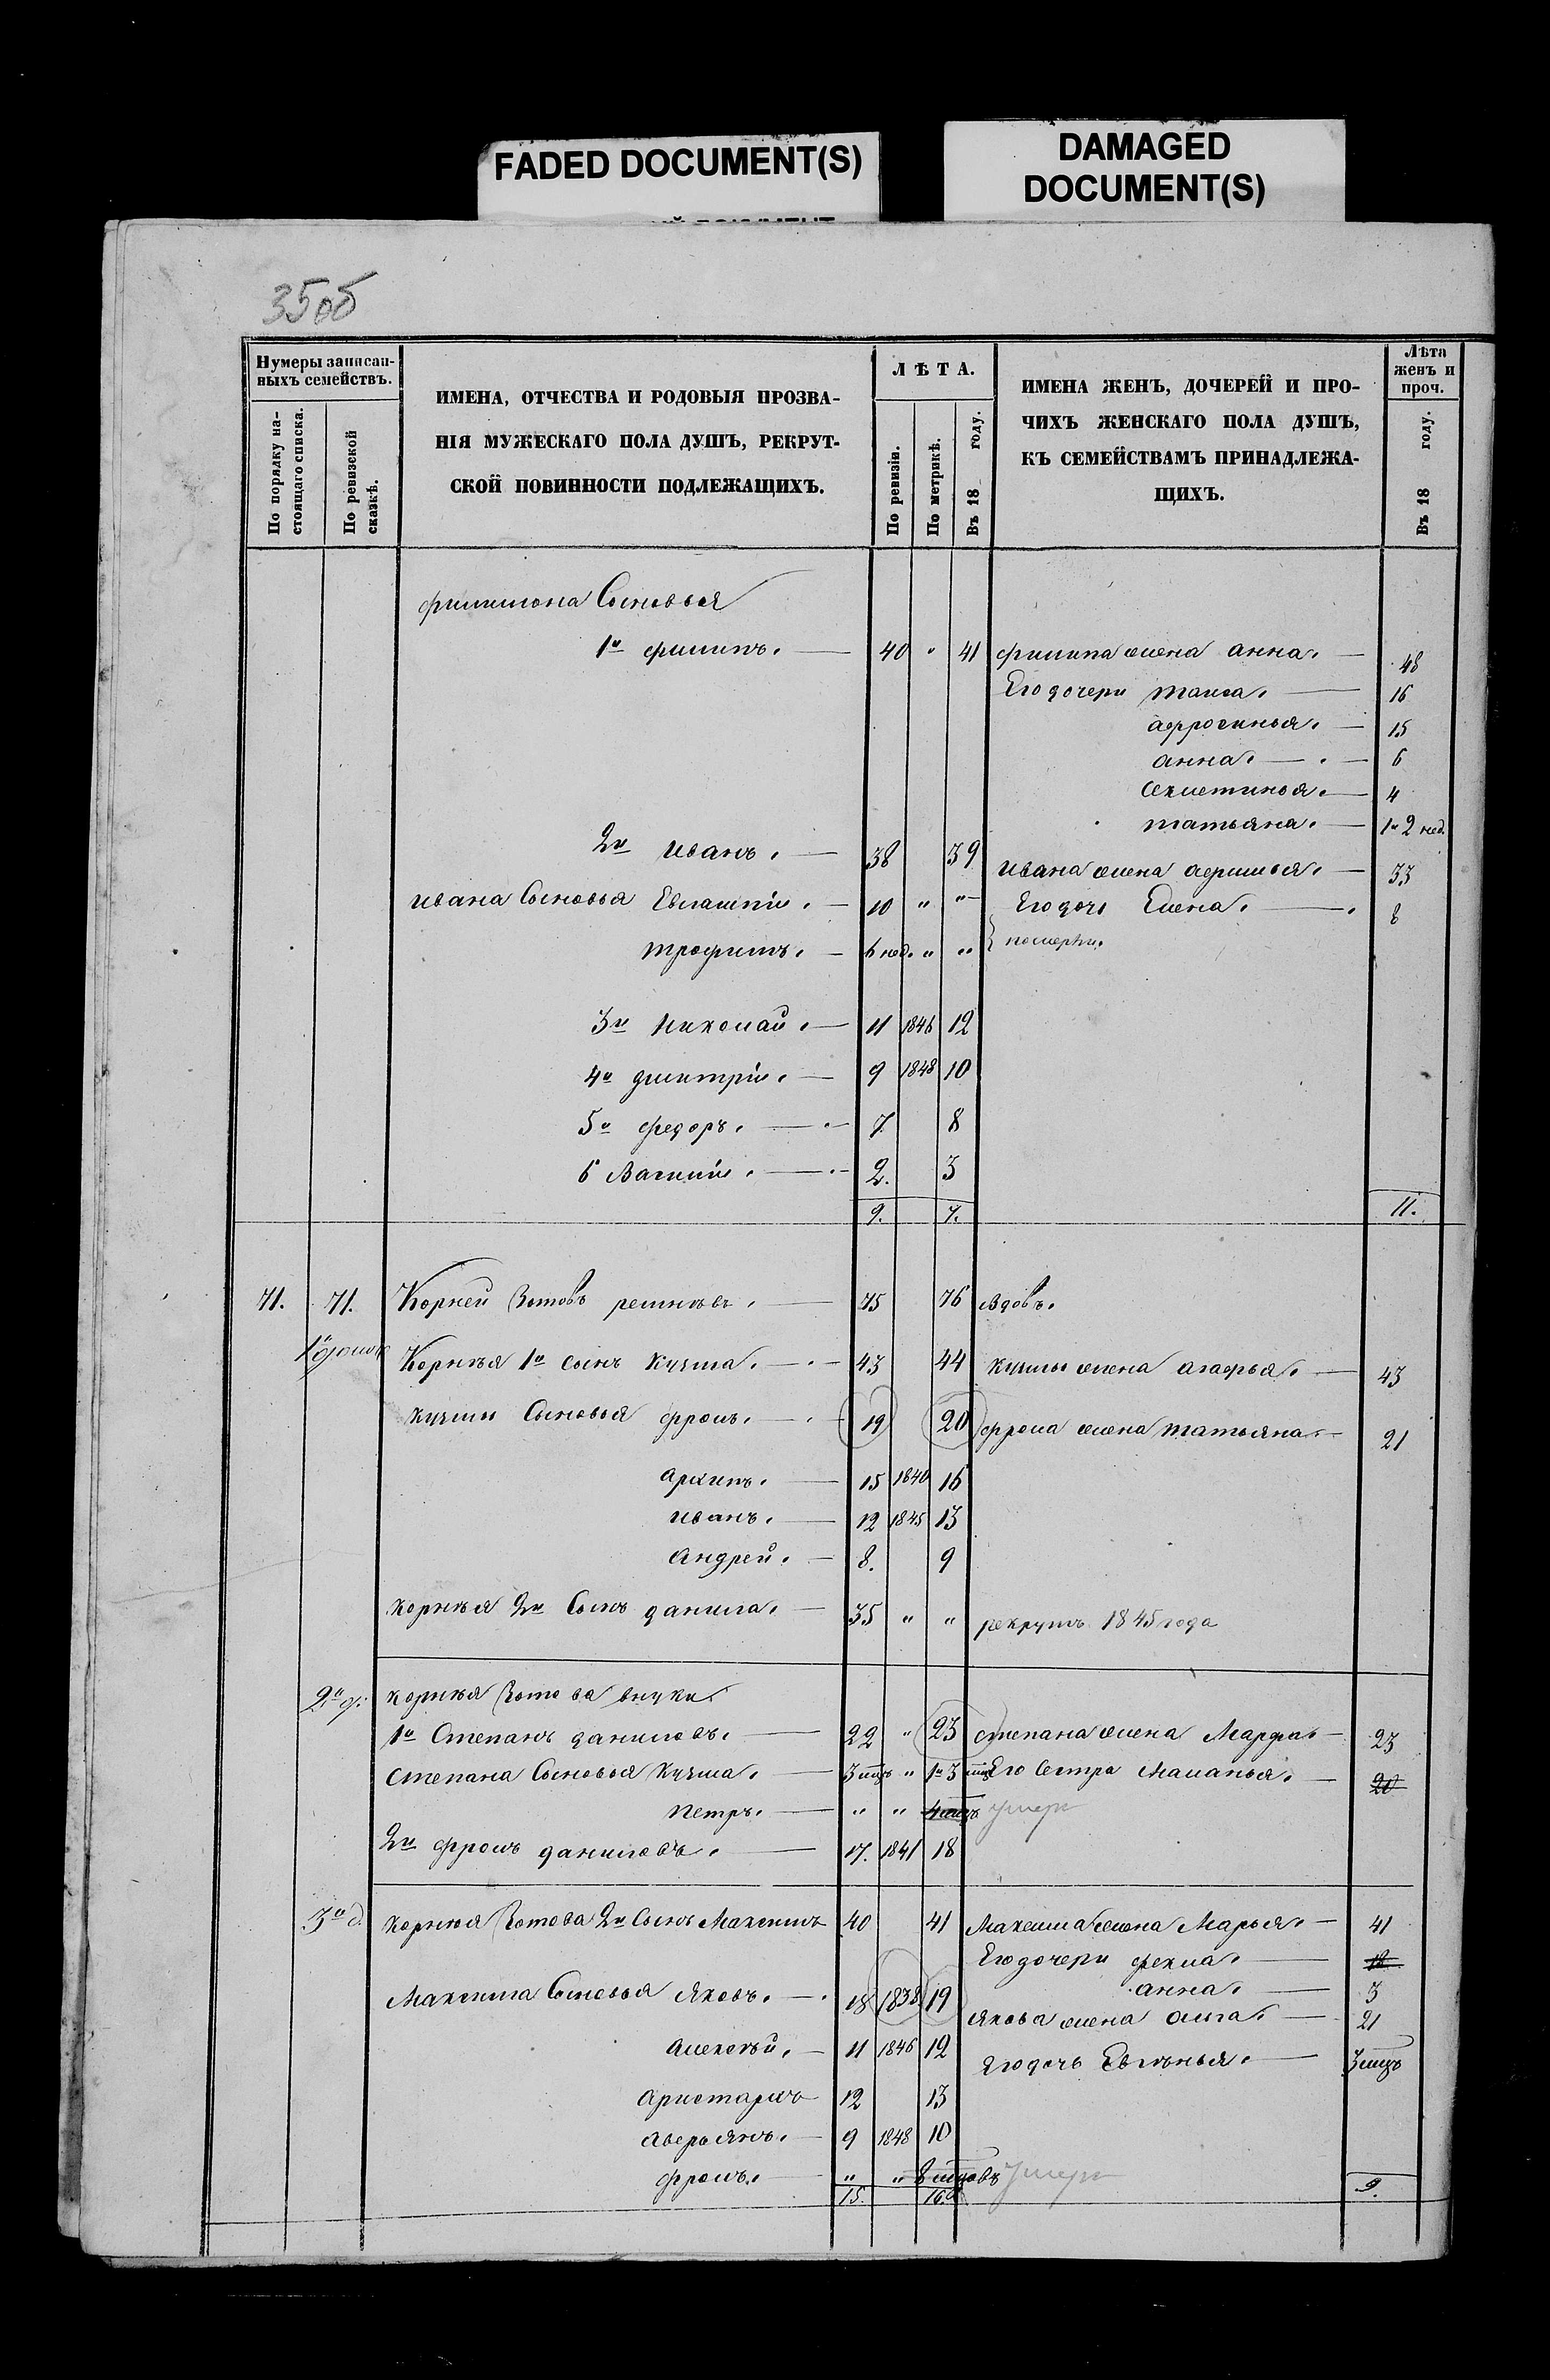 FADED DOCUMENT(S)
DAMAGED
DOCUMENT(S)
35об
Нумеры записан-
ныхъ семействъ.
По порядку на-
стоящаго списка.
По ревизской
сказкѣ.
ИМЕНА, ОТЧЕСТВА И РОДОВЫЯ ПРОЗВА-
НІЯ МУЖЕСКАГО ПОЛА ДУШЪ, РЕКРУТ-
СКОЙ ПОВИННОСТИ ПОДЛЕЖАЩИХЪ.
ЛѢТА.
По ревизіи.
По метрикѣ.
Въ 18 году.
ИМЕНА ЖЕНЪ, ДОЧЕРЕЙ И ПРО-
ЧИХЪ ЖЕНСКАГО ПОЛА ДУШЪ,
КЪ СЕМЕЙСТВАМЪ ПРИНАДЛЕЖА-
ЩИХЪ.
Лѣта
женъ и
проч.
Въ 18 году.
филимона Сыновья
1й филипъ. 40 " 41 филипа жена анна. 48
Его дочери таиса. 16
афросинья. 15
анна. 6
секлетинья. 4
татьяна. 1й 2 нед.
2й иванъ. 38 39 ивана жена афимья. 33
ивана Сыновья Евлампій. 10 " " Его дочь Елена. 8
трофимъ. 6 нед. " " } померли.
3й Николай. 11 1846 12
4й дмитрій. 9 1848 10
5й федоръ. 7 8
6 Василій. 2. 3
9. 7. 11.
71. 71. Корней Зотовъ 75 76 вдовъ.
1й домъ Корнѣя 1й сынъ Кузма. 43 44 кузмы жена агафья. 43
кузмы Сыновья фролъ. 19 20 фрола жена татьяна 21
архипъ. 15 1840 16
иванъ. 12 1845 13
андрей. 8. 9
корнѣя 2й Сынъ данила. 35 " " рекрутъ 1845 года
2й д. корнѣя Зотова внуки
1й Степанъ даниловъ. 22 " 23 степана жена Марфа 23
степана Сыновья Кузма. 3 мцъ " 1й 3 мцъ Его Сестра Маланья. 20
петръ. " " 4 мцъ умеръ
2й фролъ даниловъ. 17. 1841 18
3й д. корнѣя Зотова 2й Сынъ Максимъ 40 41 Максима жена Марья. 41
Его дочери фекла. 18
анна. 3
Максима Сыновья Яковъ. 18 1838 19 Якова жена олга. 21
алексѣй. 11 1846 12 Его дочь Евгѣнья. 3 мцъ
аристархъ 12 13
аверьянъ. 9 1848 10
фролъ. " " 8 мцовъ умеръ
15. 16. 9.